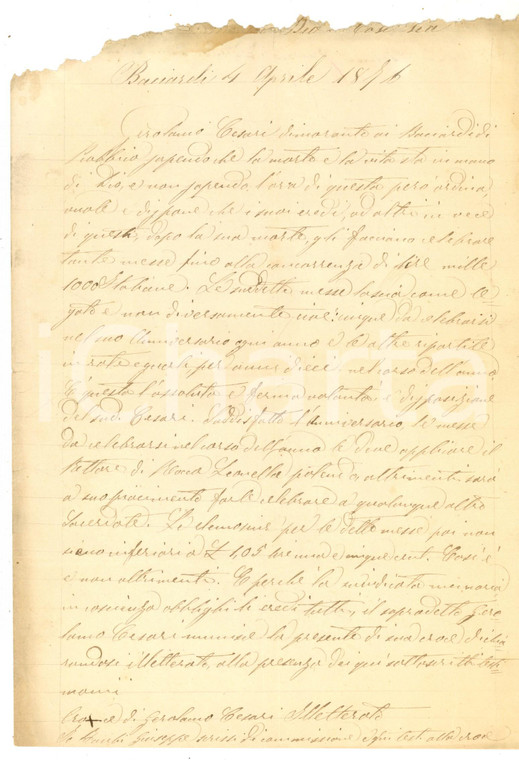 Baciardi 4 Aprile 18
Gerolamo Cesari dimorante ai Baciardi di
sapendo che la morte e la vita sta in mano
di Dio, e non sapendo l'ora di questa però ordina
e dispone che i suoi eredi, od altri in vece
di questi, dopo la sua morte, gli facciano celebrare
tante messe fino alla concorrenza di lire mille
1000 Italiane. Le suddette messe lascia come le
gato e non diversamente cioè: cinque da celebrarsi
nel suo Anniversario ogni anno e le altre ripartite
in rate eguali per anni dieci nel corso dell'anno
E' questa l'assoluta e ferma volontà e disposizione
del sud. Cesari. Soddisfatto l'Anniversario le messe
da celebrarsi nel corso dell'anno le deve applicare il
Rettore di Rocca potendo, altrimenti sarà
a suo piacimento farle celebrare a qualunque altro
Sacerdote. Le elemosine per le dette messe poi non
siano inferiori a £ 1,05 lire una e cinque cent. Così è
e non altrimenti. E perchè la memoria
in coscienza obblighi li eredi tutti, il sopradetto Gero
lamo Cesari munisce la presente di sua croce dichia
randosi illetterato, alla presenza dei qui sottoscritti testi
monii
Cro+ce di Gerolamo Cesari Illetterato
Io Giuseppe scrissi di commissione e fui teste alla croce
iCharta